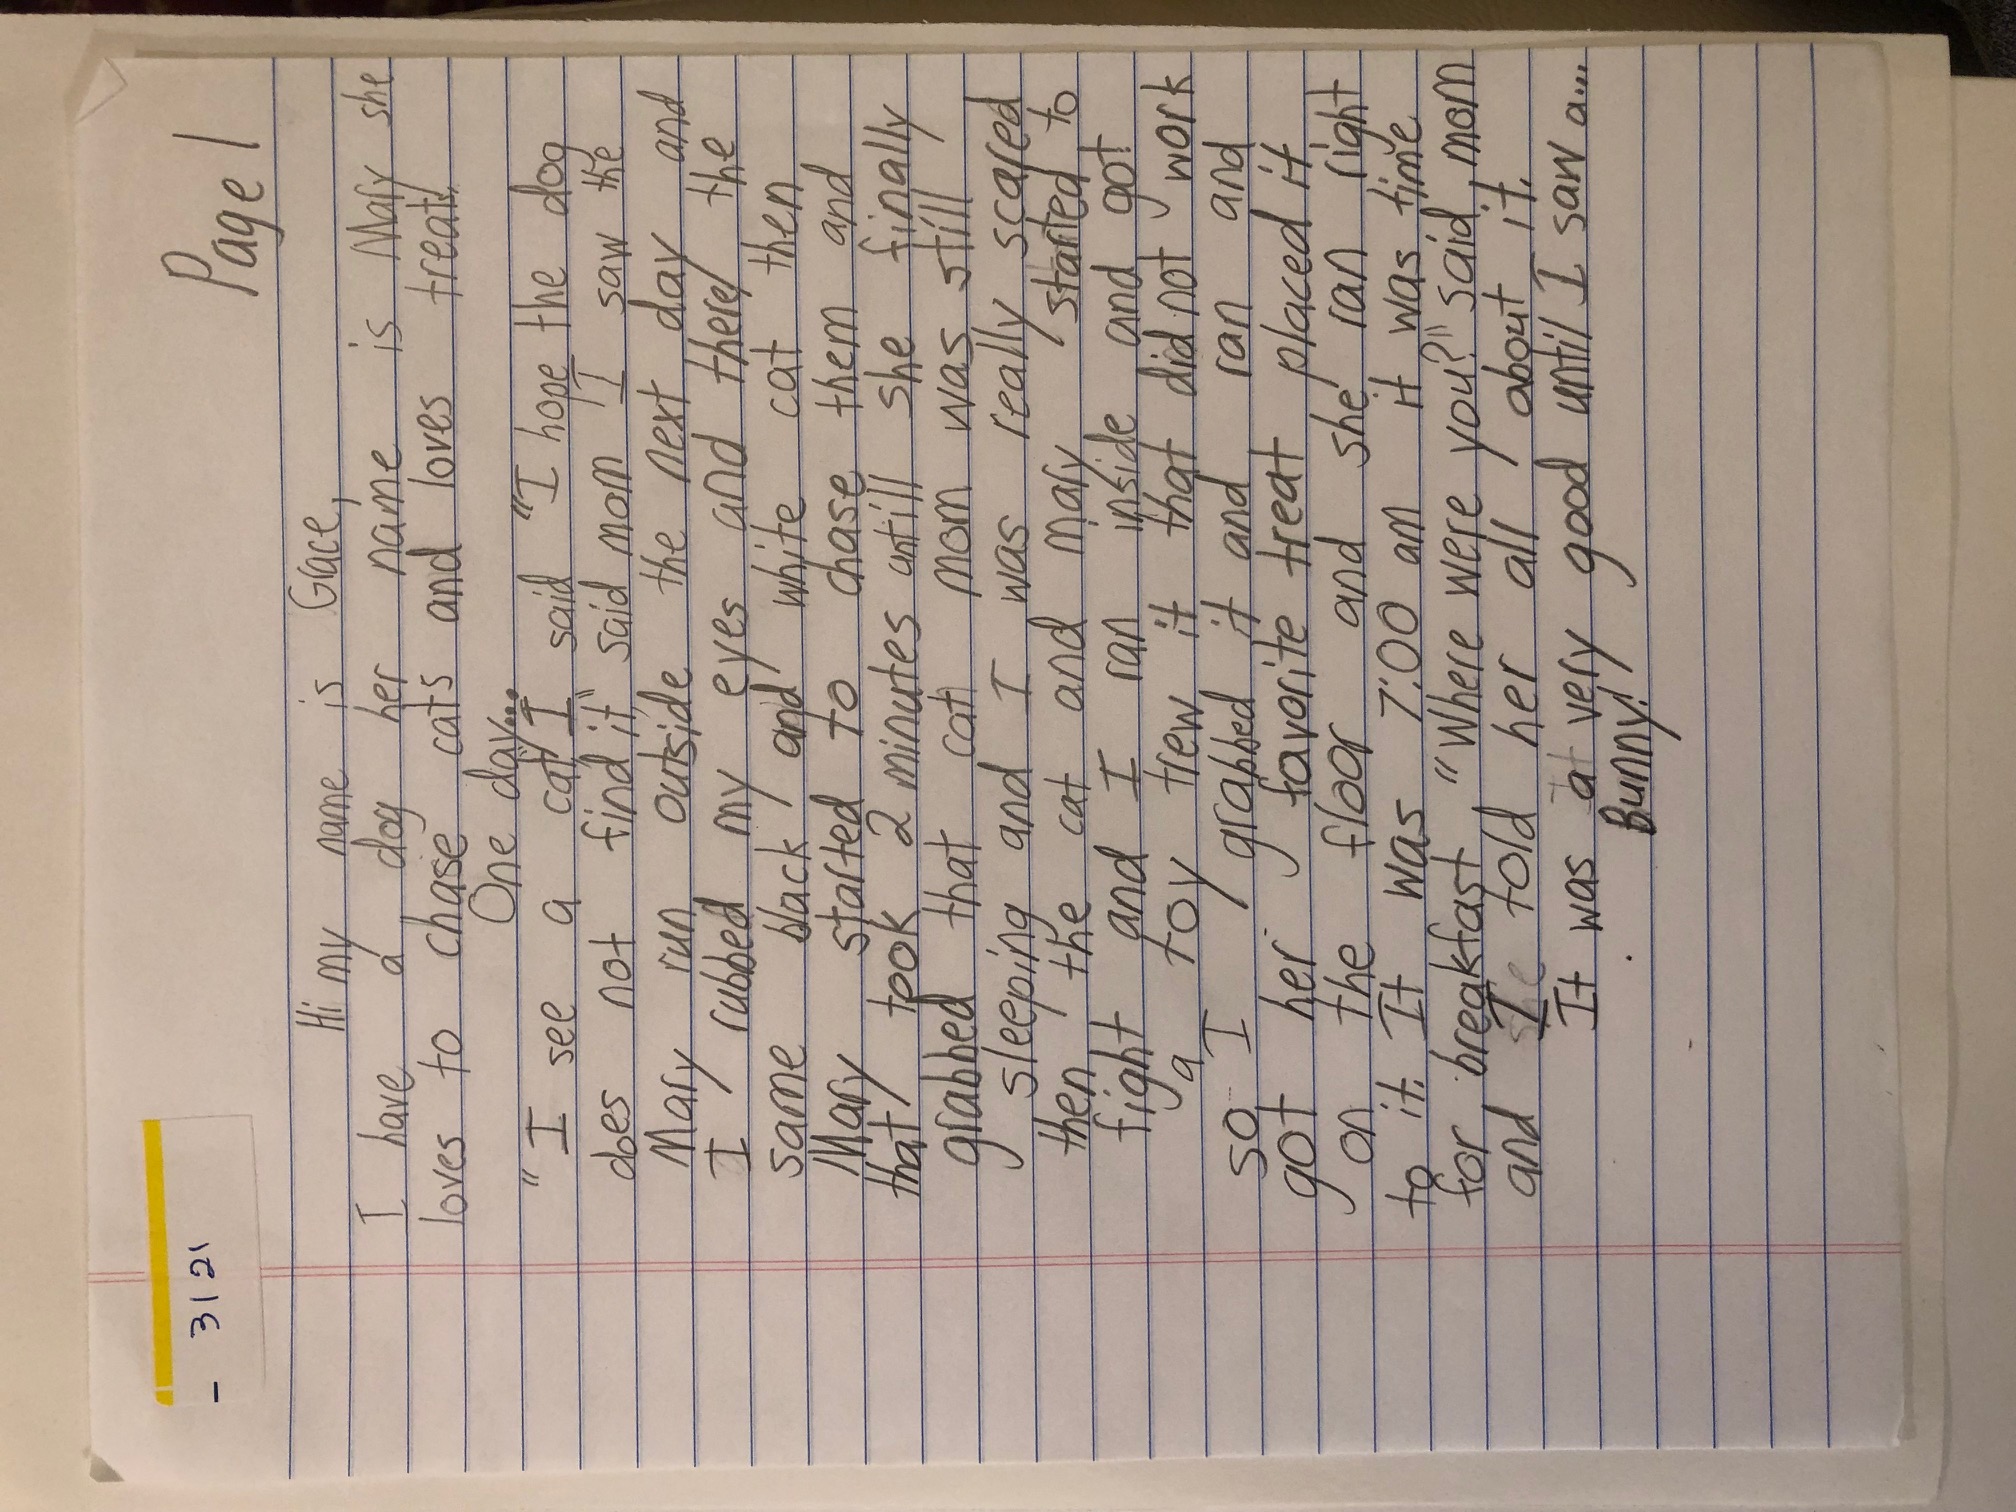 - 3121
Page 1
Hi my name is Grace,
I have a dog her name is Mary she
loves to chase cats and loves treats.
One day...
"I see a cat" I said "I hope the dog
does not find it" said mom I saw the
Mary run outside the next day and
I rubbed my eyes and there the
same black and white cat then
Mary started to chase them and
that took 2 minutes untill she finally
grabbed that cat mom was still
sleeping and I was really scared
then the cat and mary started to
fight and I ran inside and got
a toy trew it that did not work
so I grabbed it and ran and
got her favorite treat placed it
on the floor and she ran right
to it. It was 7:00 am it was time
for breakfast "Where were you?" said mom
and I told her all about it.
It was a very good until I saw a...
Bunny!